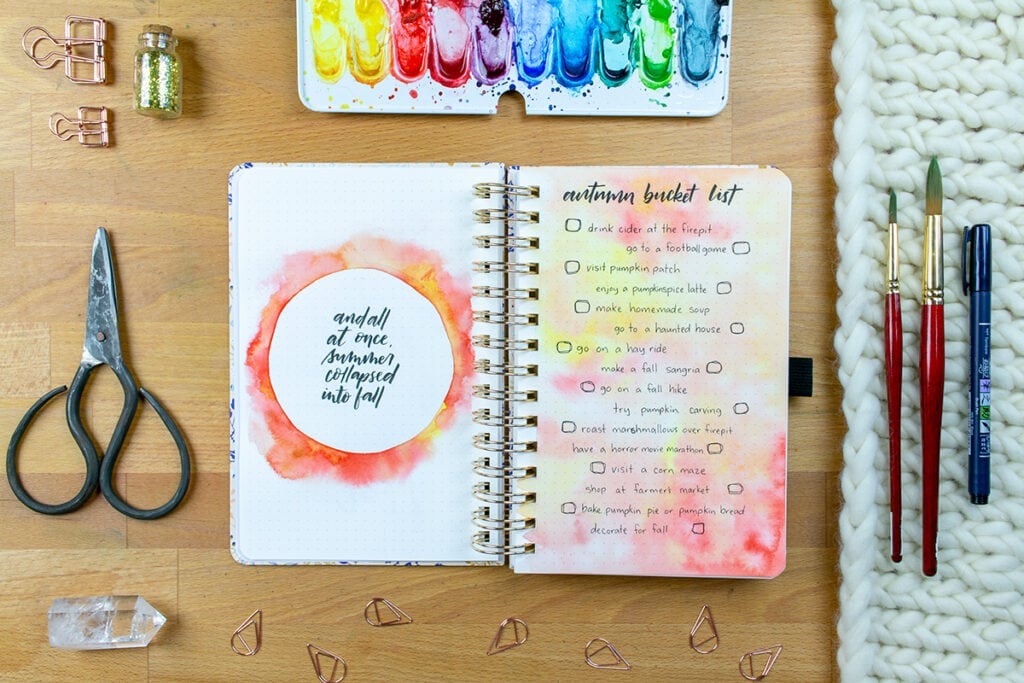 and all
at once,
summer
collapsed
into fall
autumn bucket list
drink cider at the firepit
go to a football game
visit pumpkin patch
enjoy a pumpkin spice latte
make homemade soup
go to a haunted house
go on a hay ride
make a fall sangria
go on a fall hike
try pumpkin carving
roast marshmallows over firepit
have a horror movie marathon
visit a corn maze
shop at farmers market
bake pumpkin pie or pumpkin bread
decorate for fall